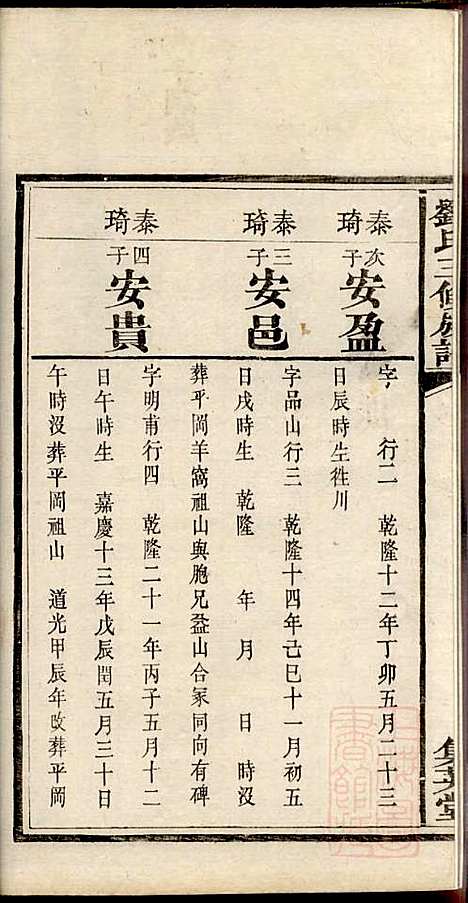 劉氏三修族譜
集芳堂
泰琦
次子
安盈
字　行二　乾隆十二年丁卯五月二十三
日辰時生徃川
泰琦
三子
安邑
字品山行三　乾隆十四年己巳十一月初五
日戌時生　乾隆　年　月　日　時沒
葬平岡羊窩祖山與胞兄益山合冢同向有碑
泰琦
四子
安貴
字明甫行四　乾隆二十一年丙子五月十二
日午時生　嘉慶十三年戊辰閏五月三十日
午時沒葬平岡祖山　道光甲辰年改葬平岡